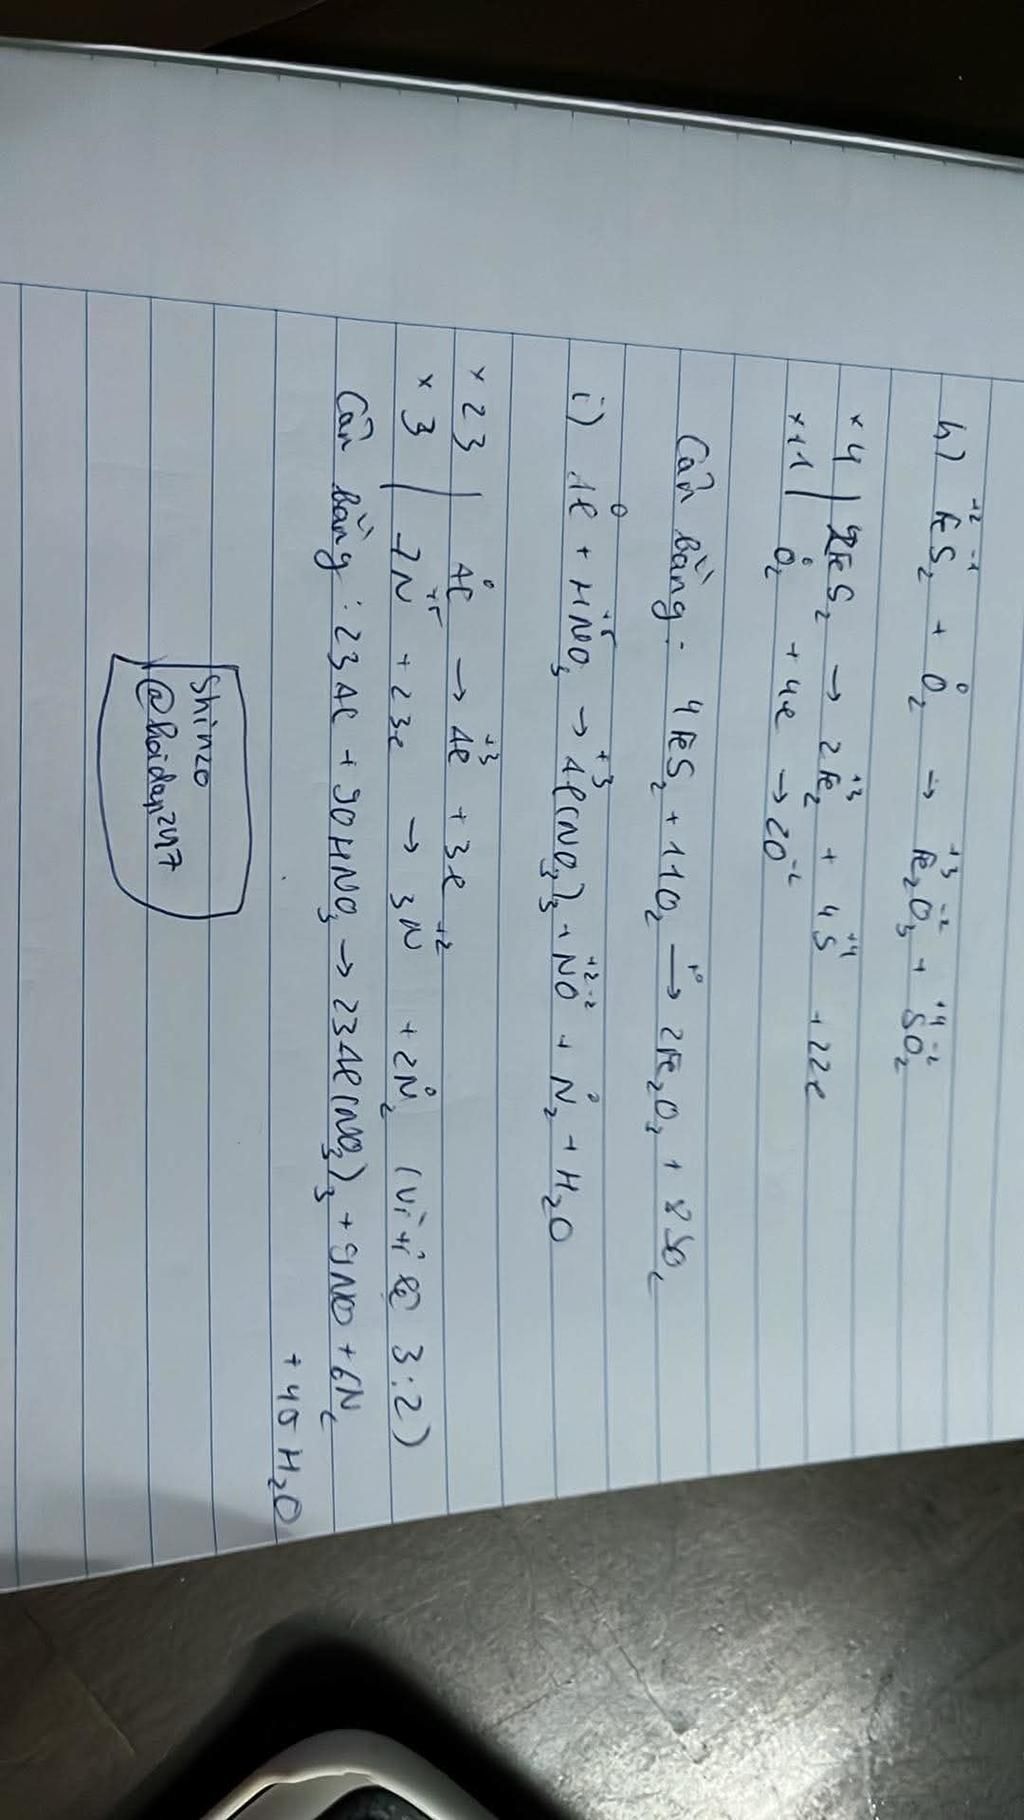 h) Fe⁺²S₂⁻¹ + O₂⁰ → Fe₂⁺³O₃⁻² + S⁺⁴O₂⁻²
×4 | 2FeS₂ → 2Fe₂⁺³ + 4S⁺⁴ + 22e
×11 | O₂⁰ + 4e → 2O⁻²
Cân bằng: 4FeS₂ + 11O₂ →ᵗ° 2Fe₂O₃ + 8SO₂
i) Al⁰ + HN⁺⁵O₃ → Al⁺³(NO₃)₃ + N⁺²O⁻² + N₂⁰ + H₂O
×23 | Al⁰ → Al⁺³ + 3e
×3 | 7N⁺⁵ + 23e → 3N⁺² + 2N₂⁰ (vì tỉ lệ 3:2)
Cân bằng: 23Al + 90HNO₃ → 23Al(NO₃)₃ + 9NO + 6N₂
+ 45H₂O
Shinzo
@haidan2417